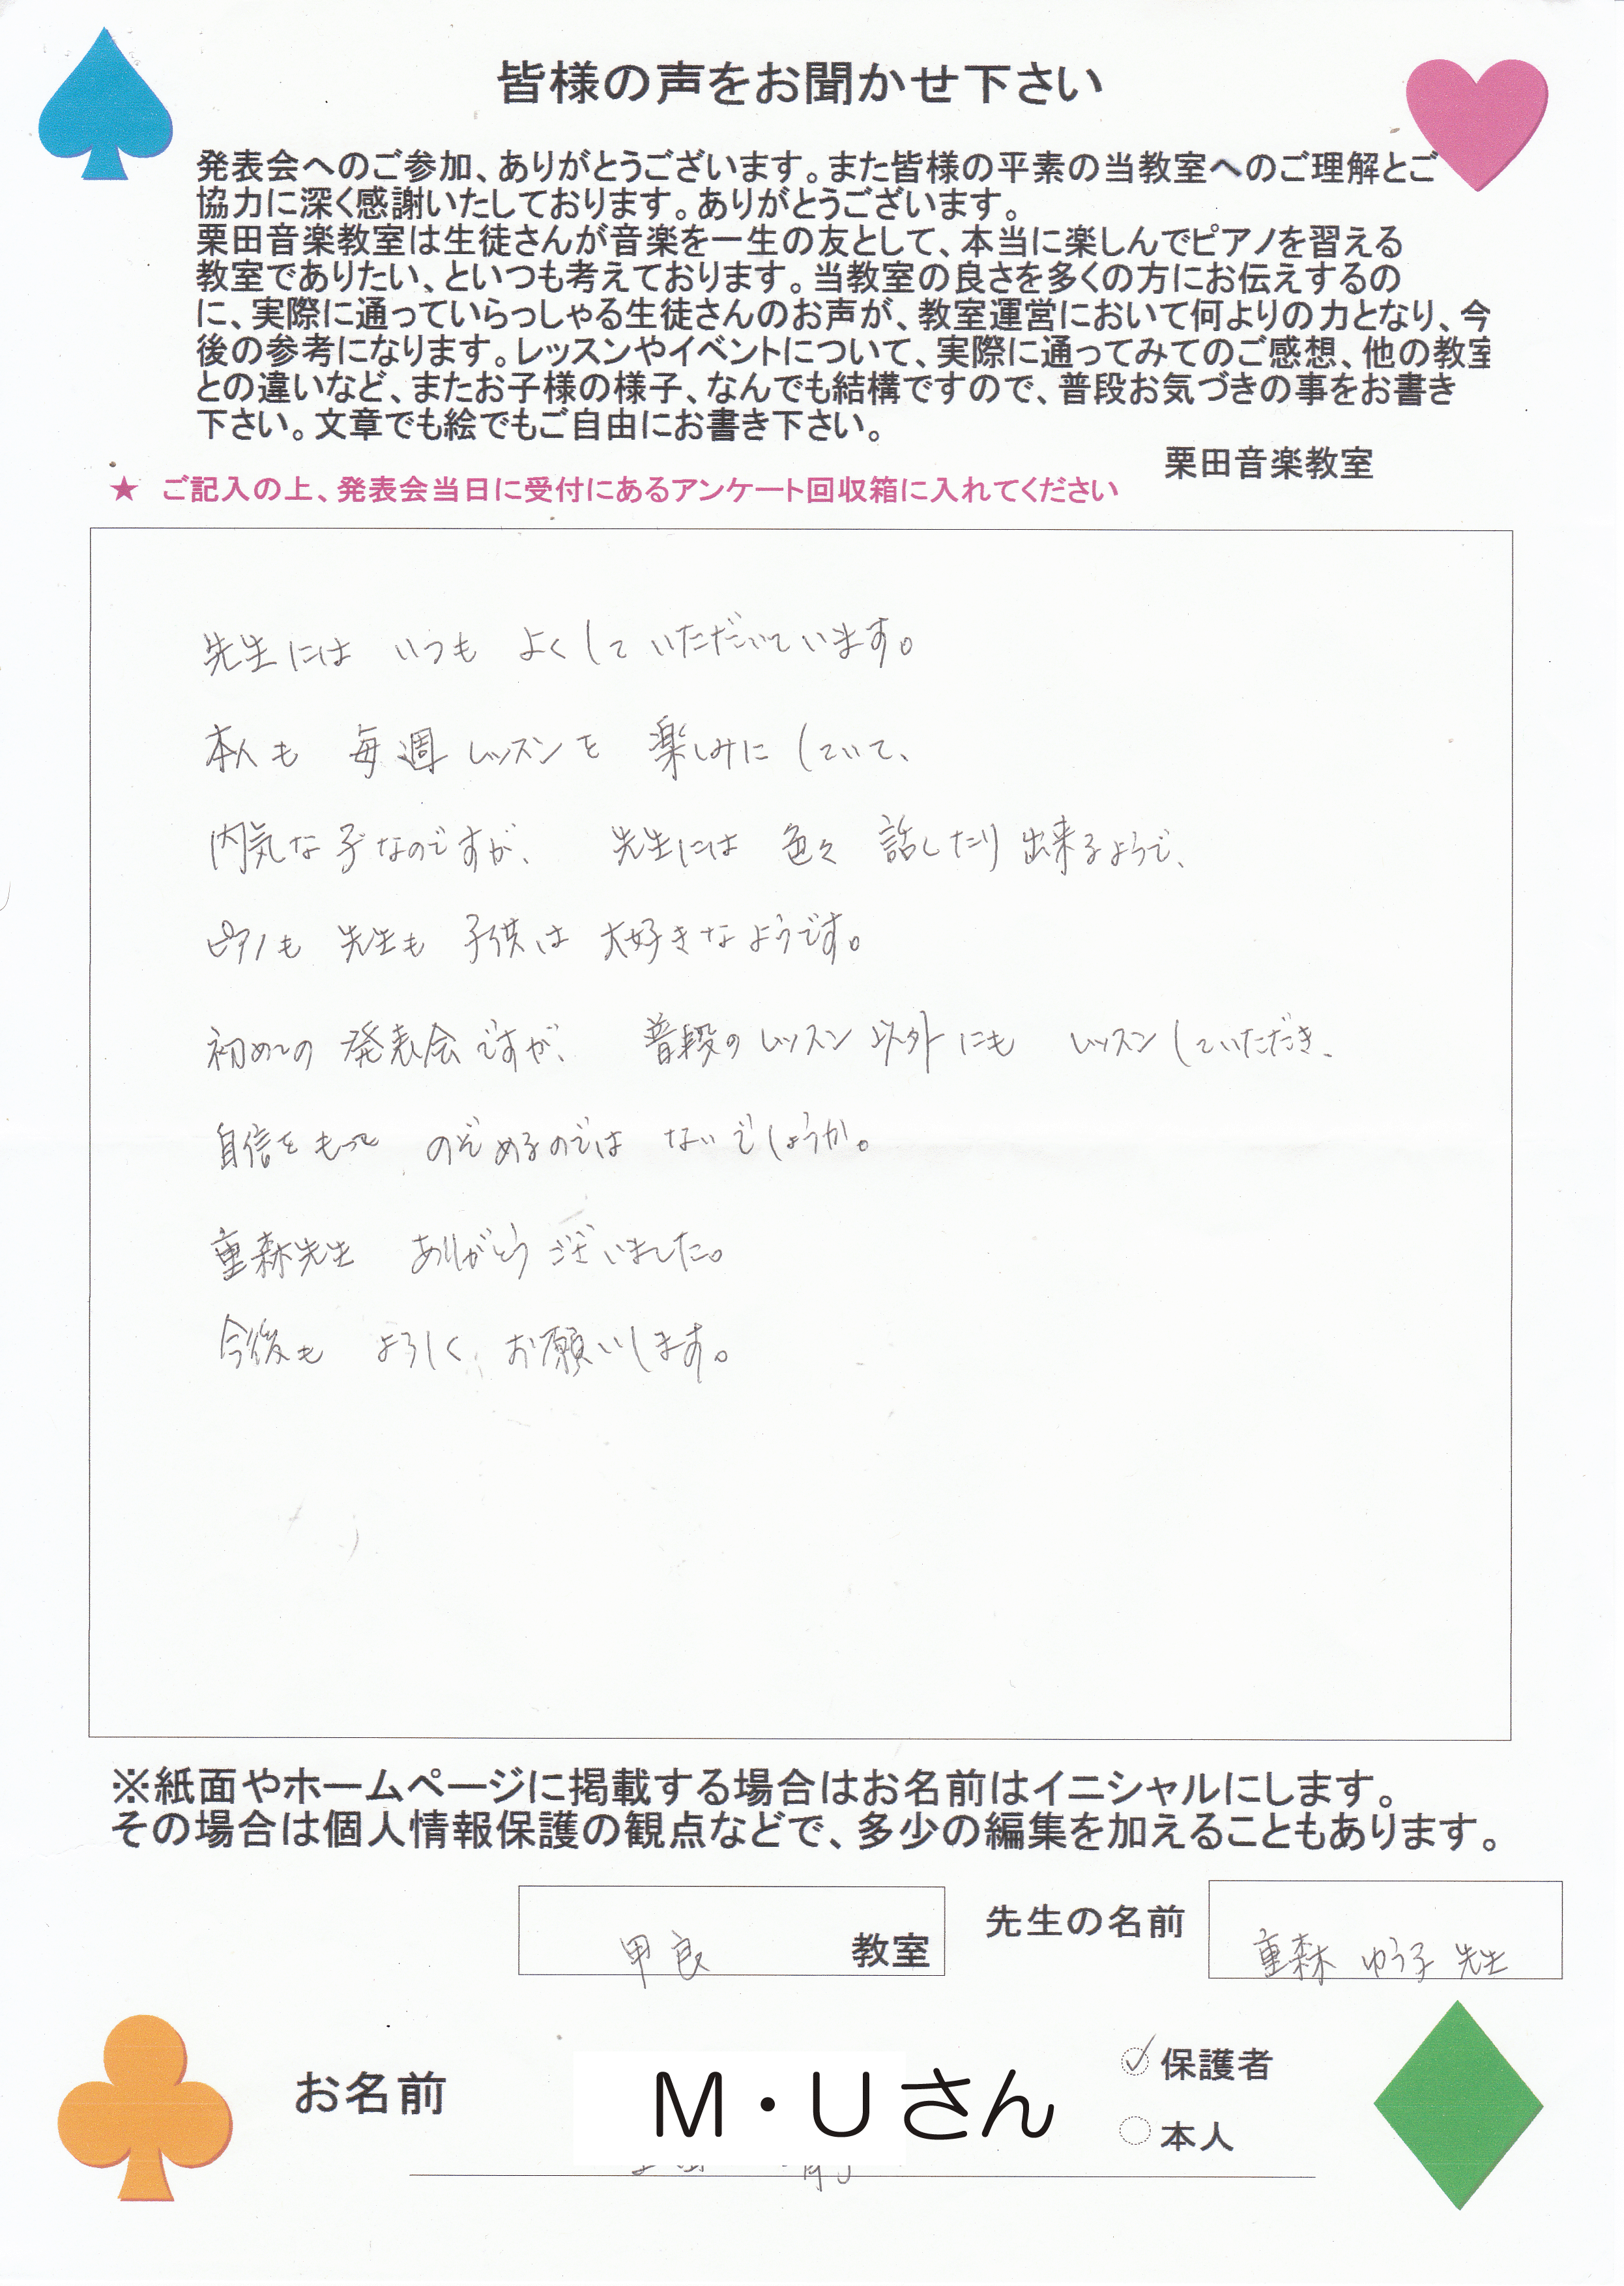 皆様の声をお聞かせ下さい
発表会へのご参加、ありがとうございます。また皆様の平素の当教室へのご理解とご
協力に深く感謝いたしております。ありがとうございます。
栗田音楽教室は生徒さんが音楽を一生の友として、本当に楽しんでピアノを習える
教室でありたい、といつも考えております。当教室の良さを多くの方にお伝えするの
に、実際に通っていらっしゃる生徒さんのお声が、教室運営において何よりの力となり、今
後の参考になります。レッスンやイベントについて、実際に通ってみてのご感想、他の教室
との違いなど、またお子様の様子、なんでも結構ですので、普段お気づきの事をお書き
下さい。文章でも絵でもご自由にお書き下さい。
栗田音楽教室
★ ご記入の上、発表会当日に受付にあるアンケート回収箱に入れてください
先生には いつも よくして いただいています。
本人も 毎週 レッスンを 楽しみに していて、
内気な子なのですが、 先生には 色々 話したり 出来るようで、
ピアノも 先生も 子供は 大好きなようです。
初めての 発表会ですが、 普段のレッスン以外にも レッスンしていただき、
自信をもって のぞめるのでは ないでしょうか。
重森先生 ありがとう ございました。
今後も よろしく お願いします。
※紙面やホームページに掲載する場合はお名前はイニシャルにします。
その場合は個人情報保護の観点などで、多少の編集を加えることもあります。
甲良 教室 先生の名前 重森 ゆう子 先生
お名前 M・Uさん
保護者
本人